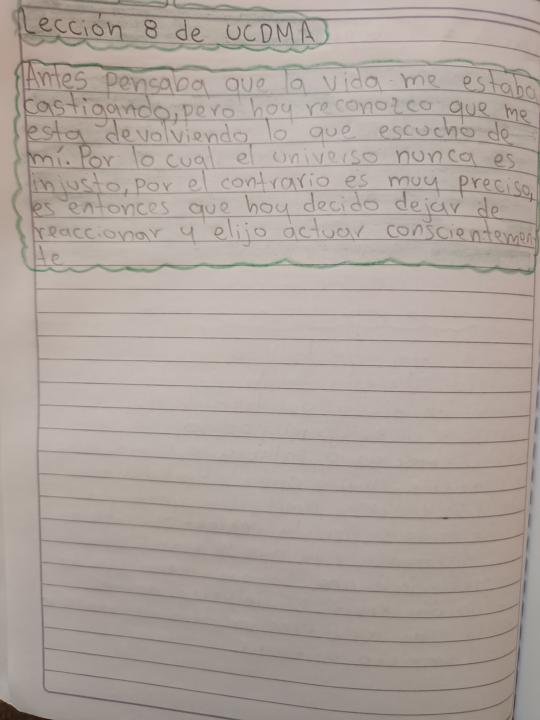 Lección 8 de UCDMA
Antes pensaba que la vida me estaba
castigando, pero hoy reconozco que me
esta devolviendo lo que escucho de
mí. Por lo cual el universo nunca es
injusto, por el contrario es muy preciso,
es entonces que hoy decido dejar de
reaccionar y elijo actuar conscientemen
te